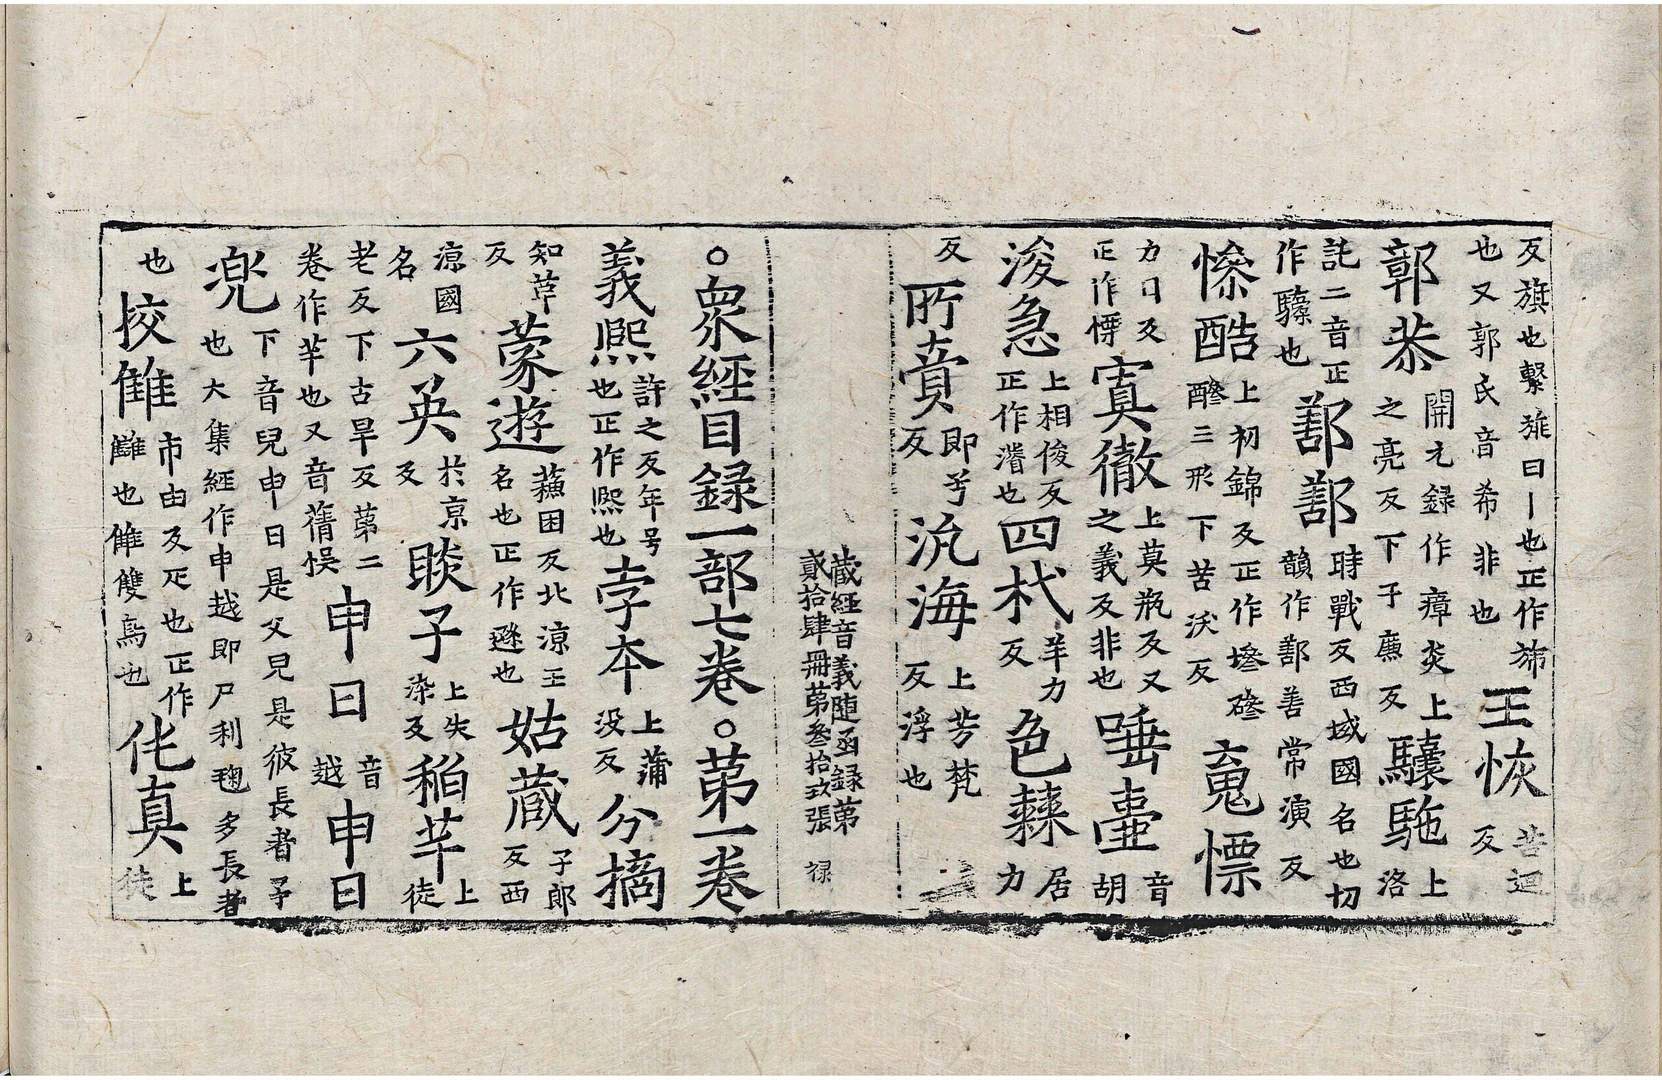 反旗也繫旐曰丨也正作旆
也又郭氏音希非也
王恢
苦迴
反
郭恭
開元録作瘴炎上
之亮反下于廉反
驤駞
上
洛
託二音正
作驝也
鄯鄯
時戰反西域國名也切
韻作鄯善常演反
慘酷
上初錦反正作墋磣
醦三形下苦沃反
嵬慓
力日反
正作慄
寞徹
上莫瓶反又
之義反非也
唾壷
音
胡
浚急
上相俊反
正作濬也
四杙
羊力
反
色棘
居
力
反
所賷
即兮
反
汎海
上芳梵
反浮也
藏經音義随函録第
貳拾肆冊第叁拾玖張
禄
○衆經目録一部七卷○第一卷
義熙
許之反年号
也正作熙也
孛本
上蒲
没反
分摘
知革
反
蒙遜
蘓困反北涼王
名也正作遜也
姑蔵
子郎
反西
涼國
名
六英
於京
反
睒子
上失
染反
稲芉
上
徒
老反下古旱反第二
卷作芉也又音蒨悮
申日
音
越
申日
下音兒申日是父兒是彼長者子
也大集經作申越即尸利毱多長者
兜
也
挍雔
市由反疋也正作
讎也雔雙鳥也
仛真
上
徒